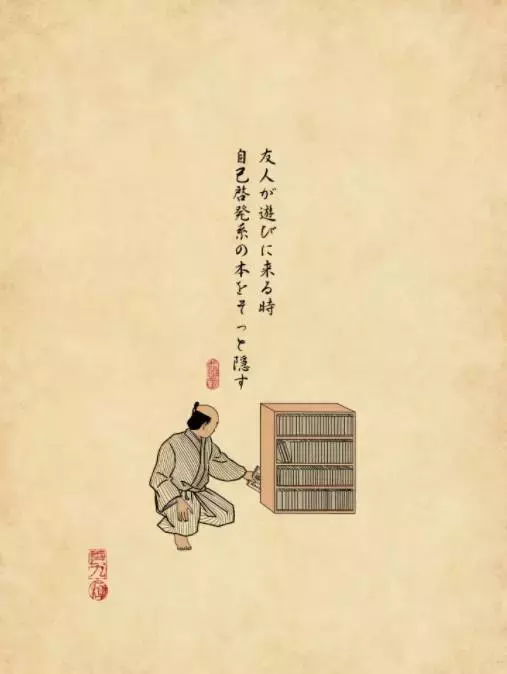 友人が遊びに来る時
自己啓発系の本をそっと隠す